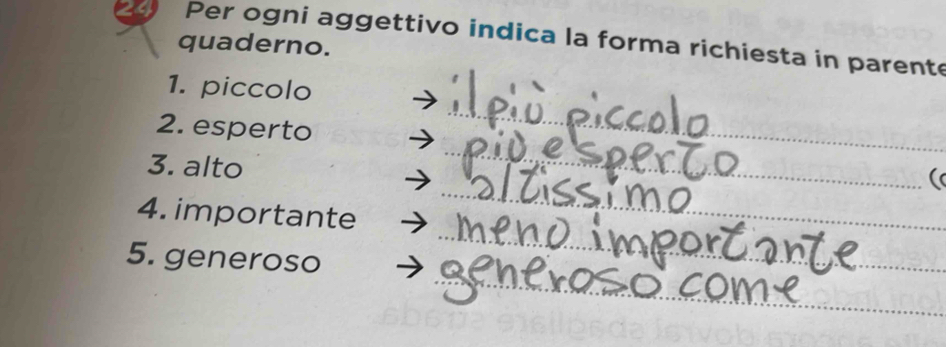 24 Per ogni aggettivo indica la forma richiesta in parente
quaderno.
1. piccolo → il più piccolo
2. esperto → più esperto
3. alto → altissimo
4. importante → meno importante
5. generoso → generoso come